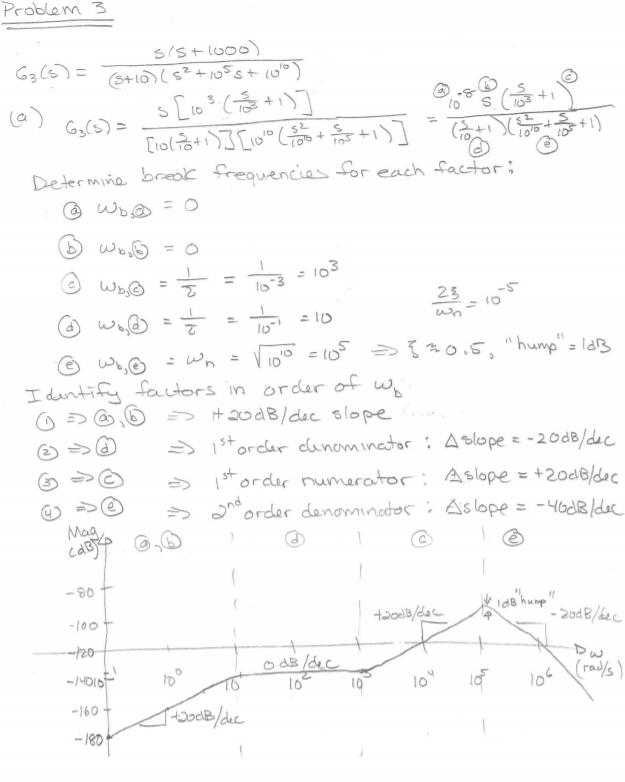 Problem 3
G₃(s) = s(s+1000) / (s+10)(s² + 10⁵s + 10¹⁰)
(a) G₃(s) = s[10³(s/10³ + 1)] / [10(s/10 + 1)][10¹⁰(s²/10¹⁰ + s/10⁵ + 1)] = ⓐ 10⁻⁸ ⓑ s · (s/10³ + 1) ⓒ / (s/10 + 1) ⓓ (s²/10¹⁰ + s/10⁵ + 1) ⓔ
Determine break frequencies for each factor:
ⓐ ω_b,ⓐ = 0
ⓑ ω_b,ⓑ = 0
ⓒ ω_b,ⓒ = 1/τ = 1/10⁻³ = 10³
2ξ/ωn = 10⁻⁵
ⓓ ω_b,ⓓ = 1/τ = 1/10⁻¹ = 10
ⓔ ω_b,ⓔ = ωn = √10¹⁰ = 10⁵ ⇒ ξ ≈ 0.5, "hump" = 1dB
Identify factors in order of ω_b
① ⇒ ⓐ,ⓑ ⇒ +20dB/dec slope
② ⇒ ⓓ ⇒ 1st order denominator: Δslope = -20dB/dec
③ ⇒ ⓒ ⇒ 1st order numerator: Δslope = +20dB/dec
④ ⇒ ⓔ ⇒ 2nd order denominator: Δslope = -40dB/dec
Mag (dB) ⓐ,ⓑ ⓓ ⓒ ⓔ
-80
1dB "hump"
+20dB/dec -20dB/dec
-100
-120
ω (rad/s)
0 dB/dec
-140 10⁻¹ 10⁰ 10¹ 10² 10³ 10⁴ 10⁵ 10⁶
-160
+20dB/dec
-180